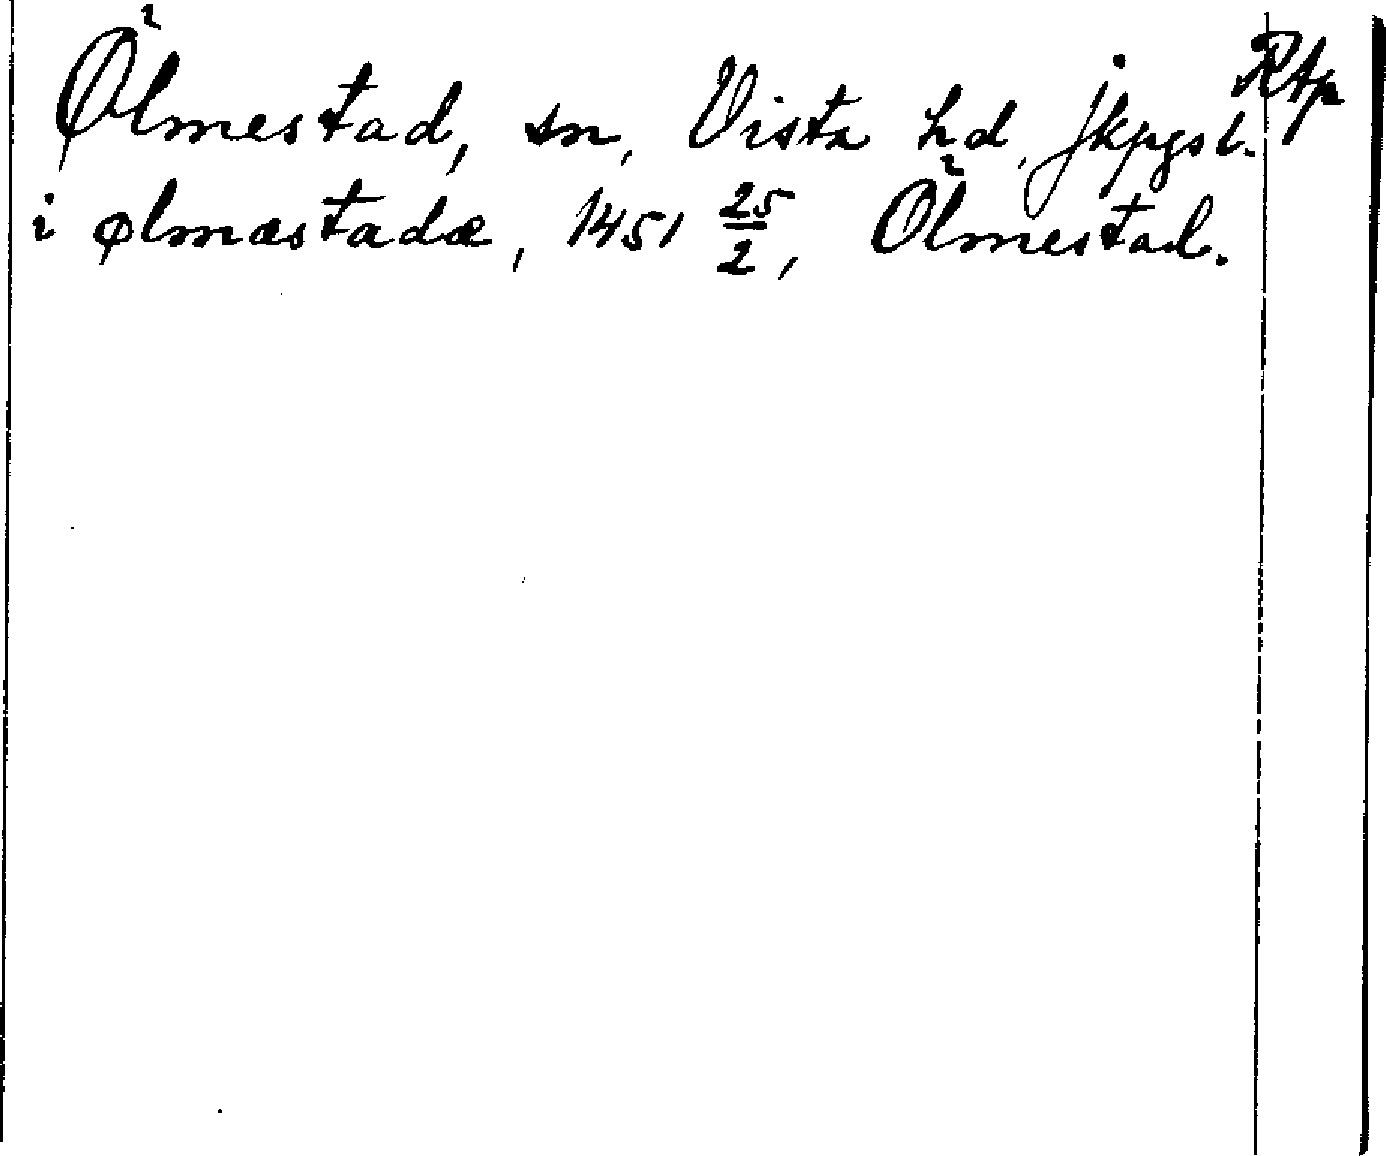 Ölmestad, sn, Vista hd, Jkpgs l. RAp
i ølmæstadæ, 1451 25/2, Ölmestad.